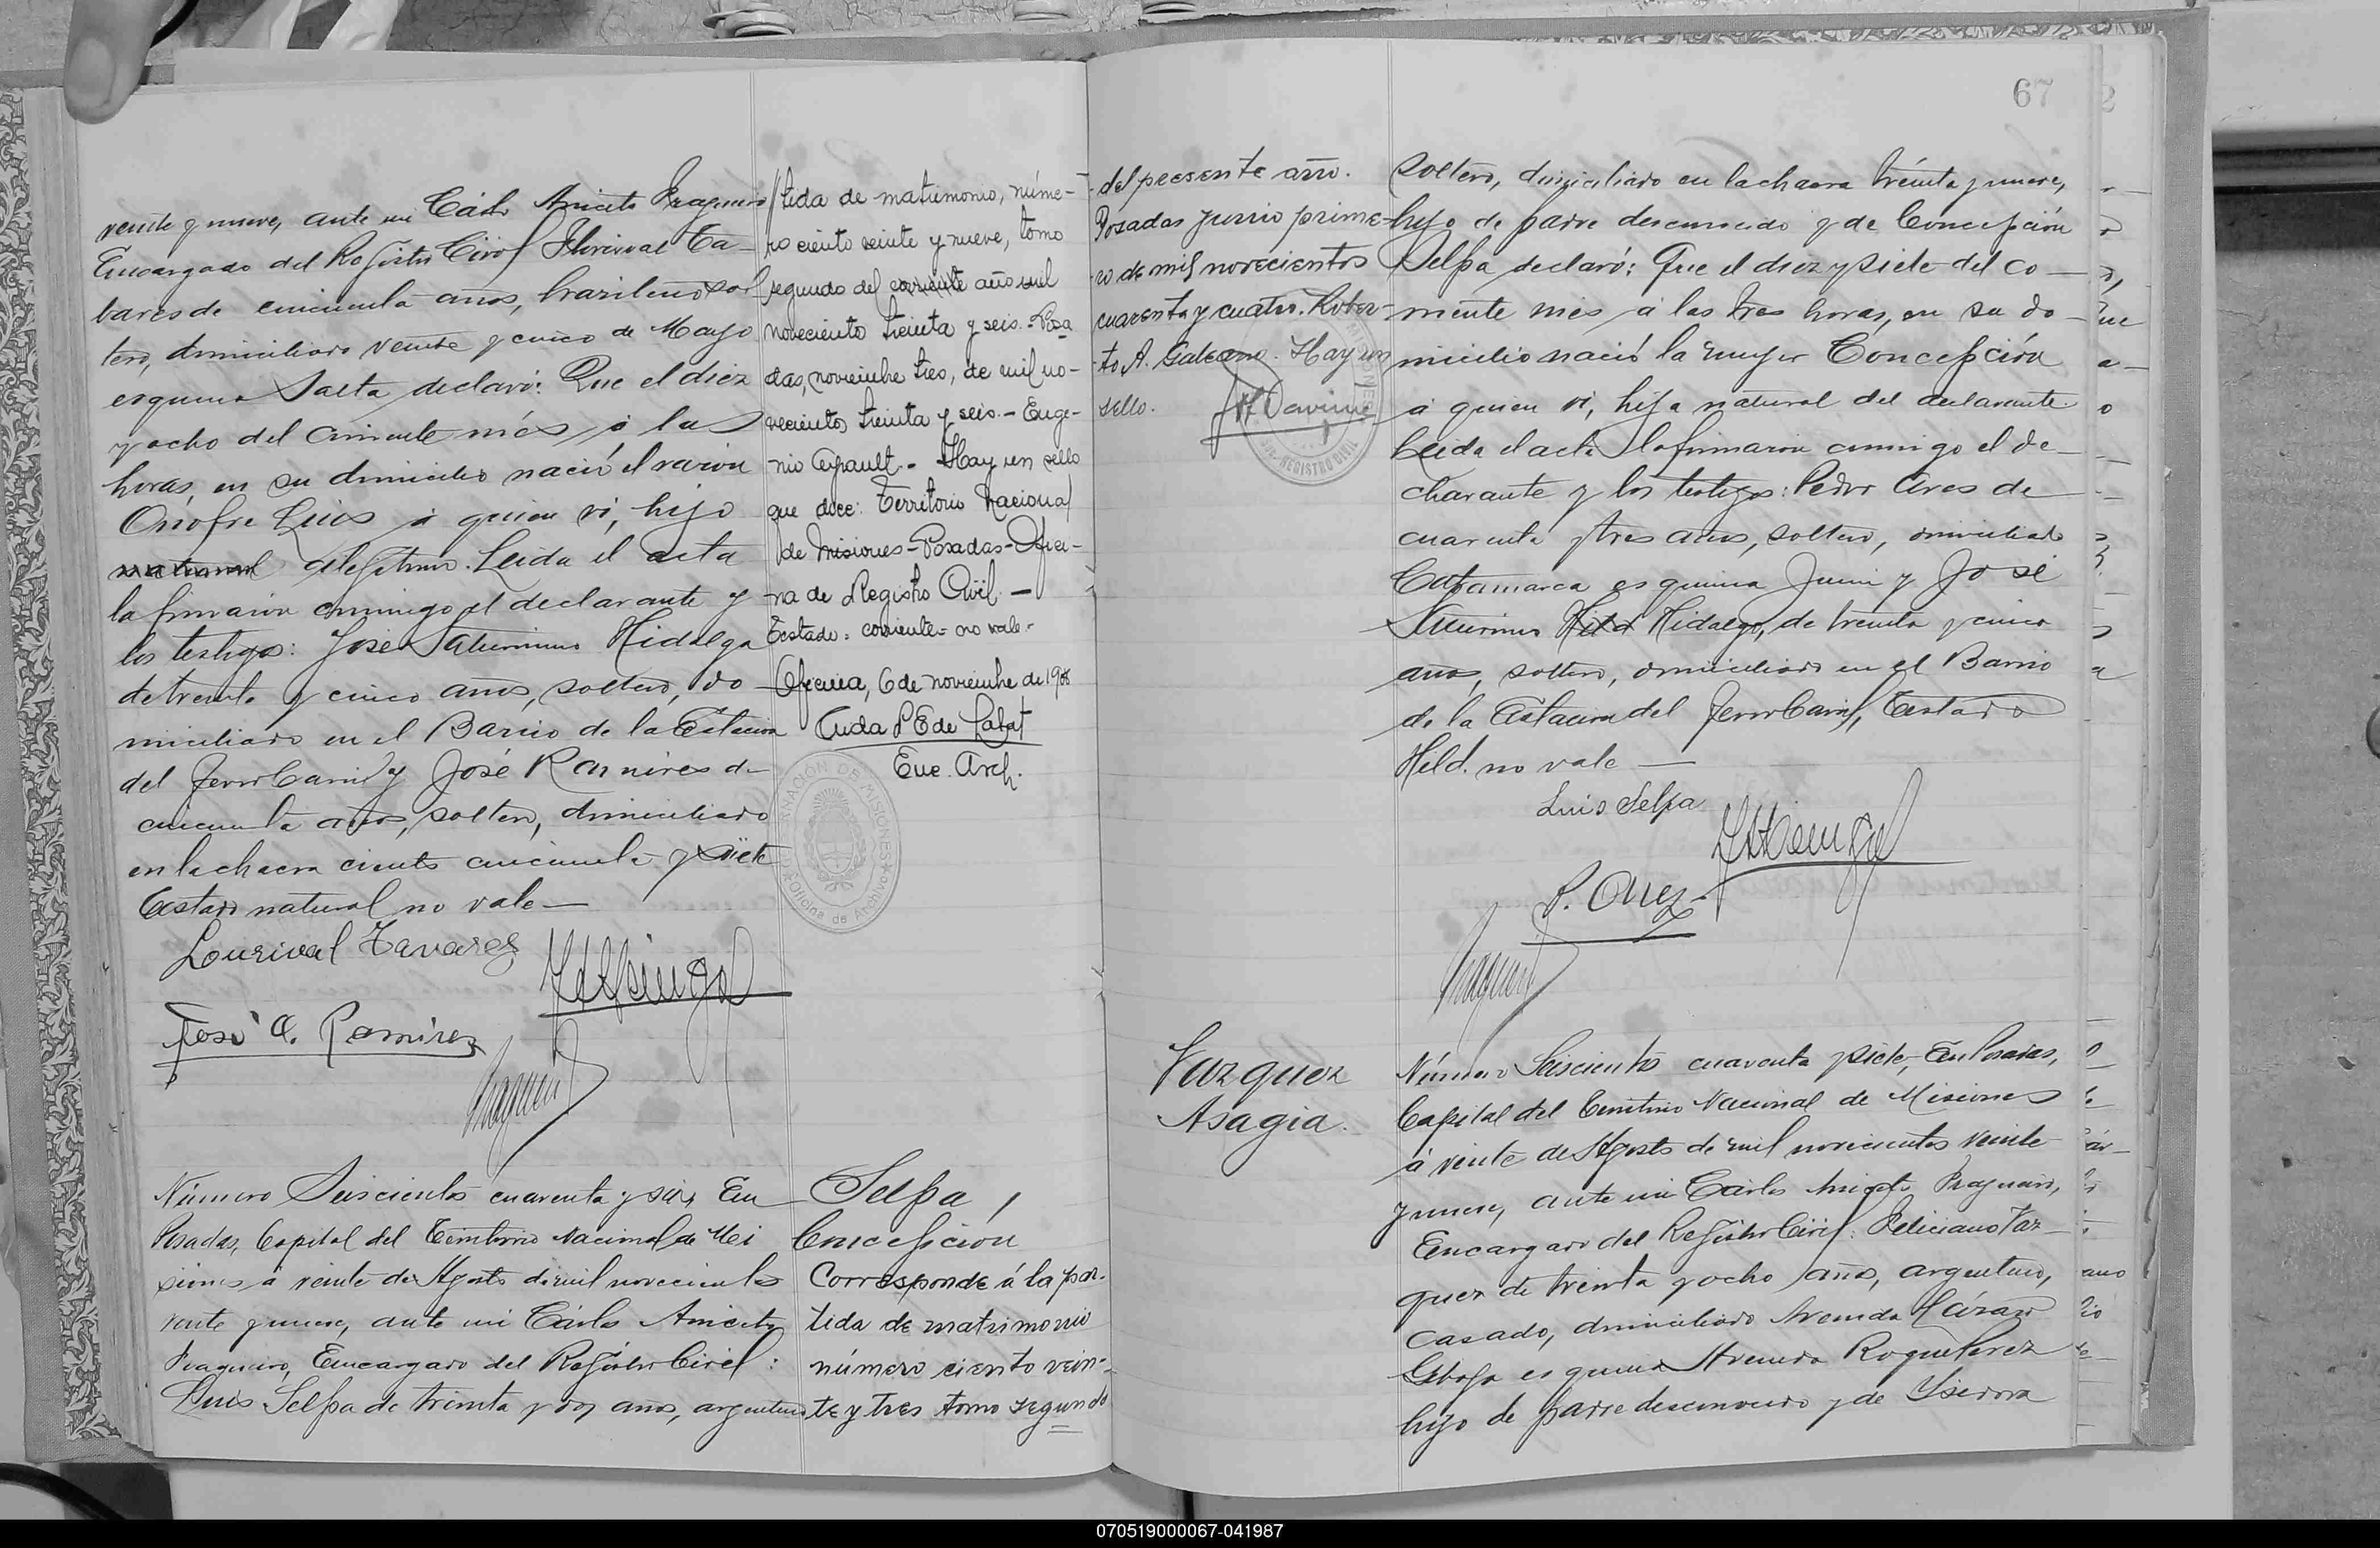 veinte y nueve, ante mi Cárlos Aniceto Fragueiro
Encargado del Registro Civil Florival Ta-
bares de cincuenta años, brasileño sol
tero, domiciliado veinte y cinco de Mayo
esquina Salta declaró: Que el diez
y ocho del corriente més á las
horas, en su domicilio nació el varón
Onofre Luis á quien ví, hijo
natural ilegítimo. Leida el acta
la firmaron conmigo el declarante y
los testigos: José Saturnino Hidalgo
de treinta y cinco años, soltero, do-
miciliado en el Barrio de la Estacion
del Ferro Carril y José Ramires de
cincuenta años, soltero, domiciliado
en la chacra ciento cincuenta y siete
Testado natural no vale—
Lourival Tavares
José A. Ramirez
Número Seiscientos cuarenta y seis, En
Posadas, Capital del Territorio Nacional de Mi
siones á veinte de Agosto de mil novecientos
veinte y nueve, ante mi Cárlos Aniceto
Fragueiro, Encargado del Registro Civil:
Luis Selpa de treinta y dos años, argentino
//tida de matrimonio, núme-
ro ciento veinte y nueve, tomo
segundo del corriente año mil
noveciento treinta y seis.- Posa
das, noviembre tres, de mil no-
vecientos treinta y seis.- Euge-
nio Ayrault.- Hay un sello
que dice: Territorio Nacional
de Misiones-Posadas-Ofici-
na de Registro Civil.—
Testado: corriente= no vale.-
Oficina, 6 de noviembre de
Enc. Arch.
GOBERNACIÓN DE MISIONES
Oficina de Archivo
Selpa,
Concepción
Corresponde á la par-
tida de matrimonio
número ciento vein-
te y tres tomo segundo
67
del presente año.
Posadas junio prime-
ro de mil novecientos
cuarenta y cuatro. Rober-
to A. Galeano. Hay un
sello.
REGISTRO CIVIL
soltero, domiciliado en la chacra treinta y nueve,
hijo de padre desconocido y de Concepción
Selpa declaró: Que el diez y siete del co-
rriente més á las tres horas, en su do-
micilio nació la mujer Concepción
á quien ví, hija natural del declarante
Leida el acta la firmaron conmigo el de-
clarante y los testigos: Pedro Ares de
cuarenta y tres años, soltero, domiciliado
Catamarca esquina Junin y José
Saturnino Hild Hidalgo, de treinta y cinco
años, soltero, domiciliado en el Barrio
de la Estacion del Ferro Carril, Testado
Hild. no vale—
Luis Selpa
P. Ares
Vazquez
Asagia.
Número Seiscientos cuarenta y siete, En Posadas,
Capital del Territorio Nacional de Misiones
á veinte de Agosto de mil novecientos veinte
y nueve, ante mi Cárlos Aniceto Fragueiro,
Encargado del Registro Civil: Feliciano Vaz-
quez de treinta y ocho años, argentino,
casado, domiciliado Avenida Lázaro
Gibaja esquina Avenida Roque Perez
hijo de padre desconocido y de Isidora
070519000067-041987